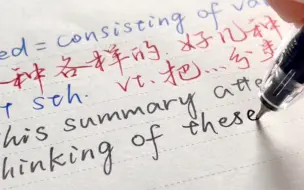 ed = consisting of va
一种各样的, 好几种
t sth. vt. 把...分享
his summary atte
hinking of these